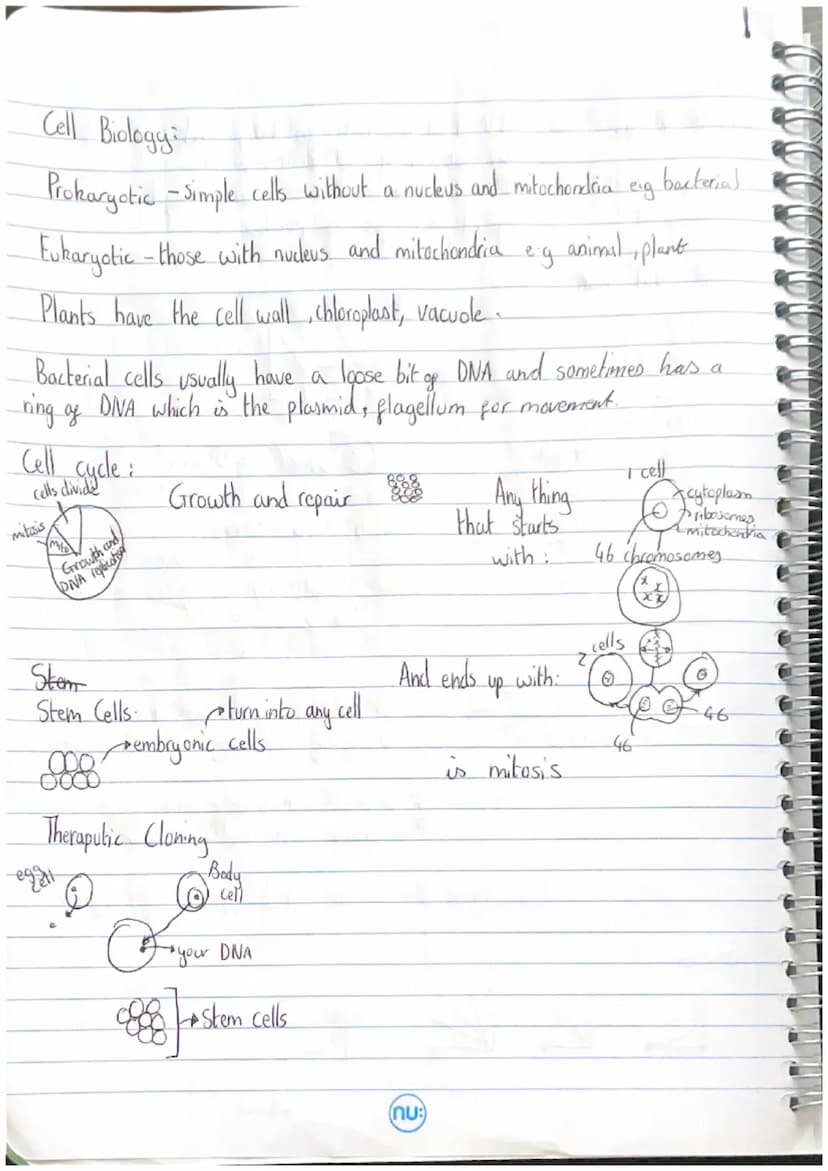 1
Cell Biology:
Prokaryotic - simple cells without a nucleus and mitochondria e.g bacterial
Eukaryotic - those with nucleus and mitochondria e.g animal, plant
Plants have the cell wall, chloroplast, vacuole.
Bacterial cells usually have a loose bit of DNA and sometimes has a
ring of DNA which is the plasmid, flagellum for movement.
Cell cycle:
cells divide
mitosis
mito
Growth and
DNA replication
Growth and repair
Any thing
that starts
with:
1 cell
cytoplasm
ribosomes
mitochondria
46 chromosomes
x x
x x
2 cells
And ends up with:
46
46
is mitosis
Stem
Stem Cells.
turn into any cell
embryonic cells
Theraputic Cloning
egg
cell
Body
cell
your DNA
Stem cells
nu: